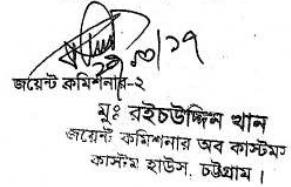 ২২.১০/১৭
জয়েন্ট কমিশনার-২
মুঃ রইচউদ্দিন খান
জয়েন্ট কমিশনার অব কাস্টমস
কাস্টম হাউস, চট্টগ্রাম।